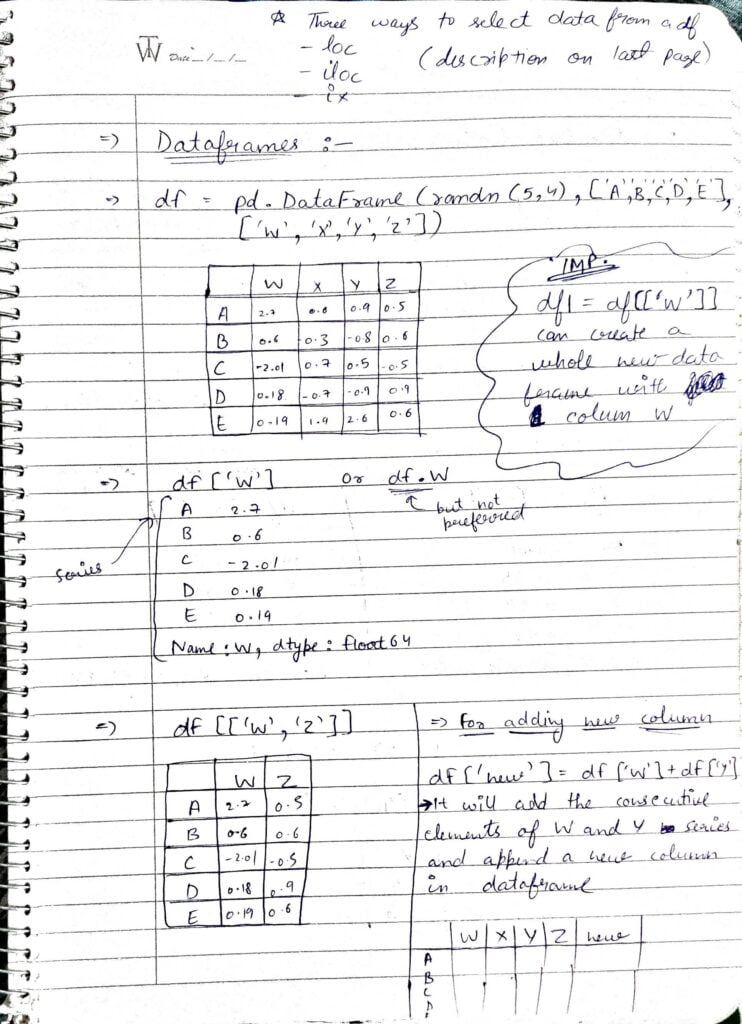 * Three ways to select data from a df
- loc (description on last page)
- iloc
- ix
TW Date _/_/_
=> Dataframes :-
=> df = pd. DataFrame (randn (5,4), ['A','B','C','D','E'],
['W', 'X', 'Y', 'Z'])
W X Y Z
A 2.7 0.6 0.9 0.5
B 0.6 0.3 -0.8 0.6
C -2.01 0.7 0.5 -0.5
D 0.18 -0.7 -0.9 0.9
E 0.19 1.9 2.6 0.6
IMP.
df1 = df[['W']]
can create a
whole new data
frame with
colum W
=> df ['W'] or df.W
but not
preferred
series
A 2.7
B 0.6
C -2.01
D 0.18
E 0.19
Name : W, dtype : float 64
=> df [['W', 'Z']]
W Z
A 2.7 0.5
B 0.6 0.6
C -2.01 -0.5
D 0.18 0.9
E 0.19 0.6
=> For adding new column
df['new'] = df ['W'] + df ['Y']
→ It will add the consecutive
elements of W and Y series
and append a new column
in dataframe
W X Y Z new
A
B
C
D